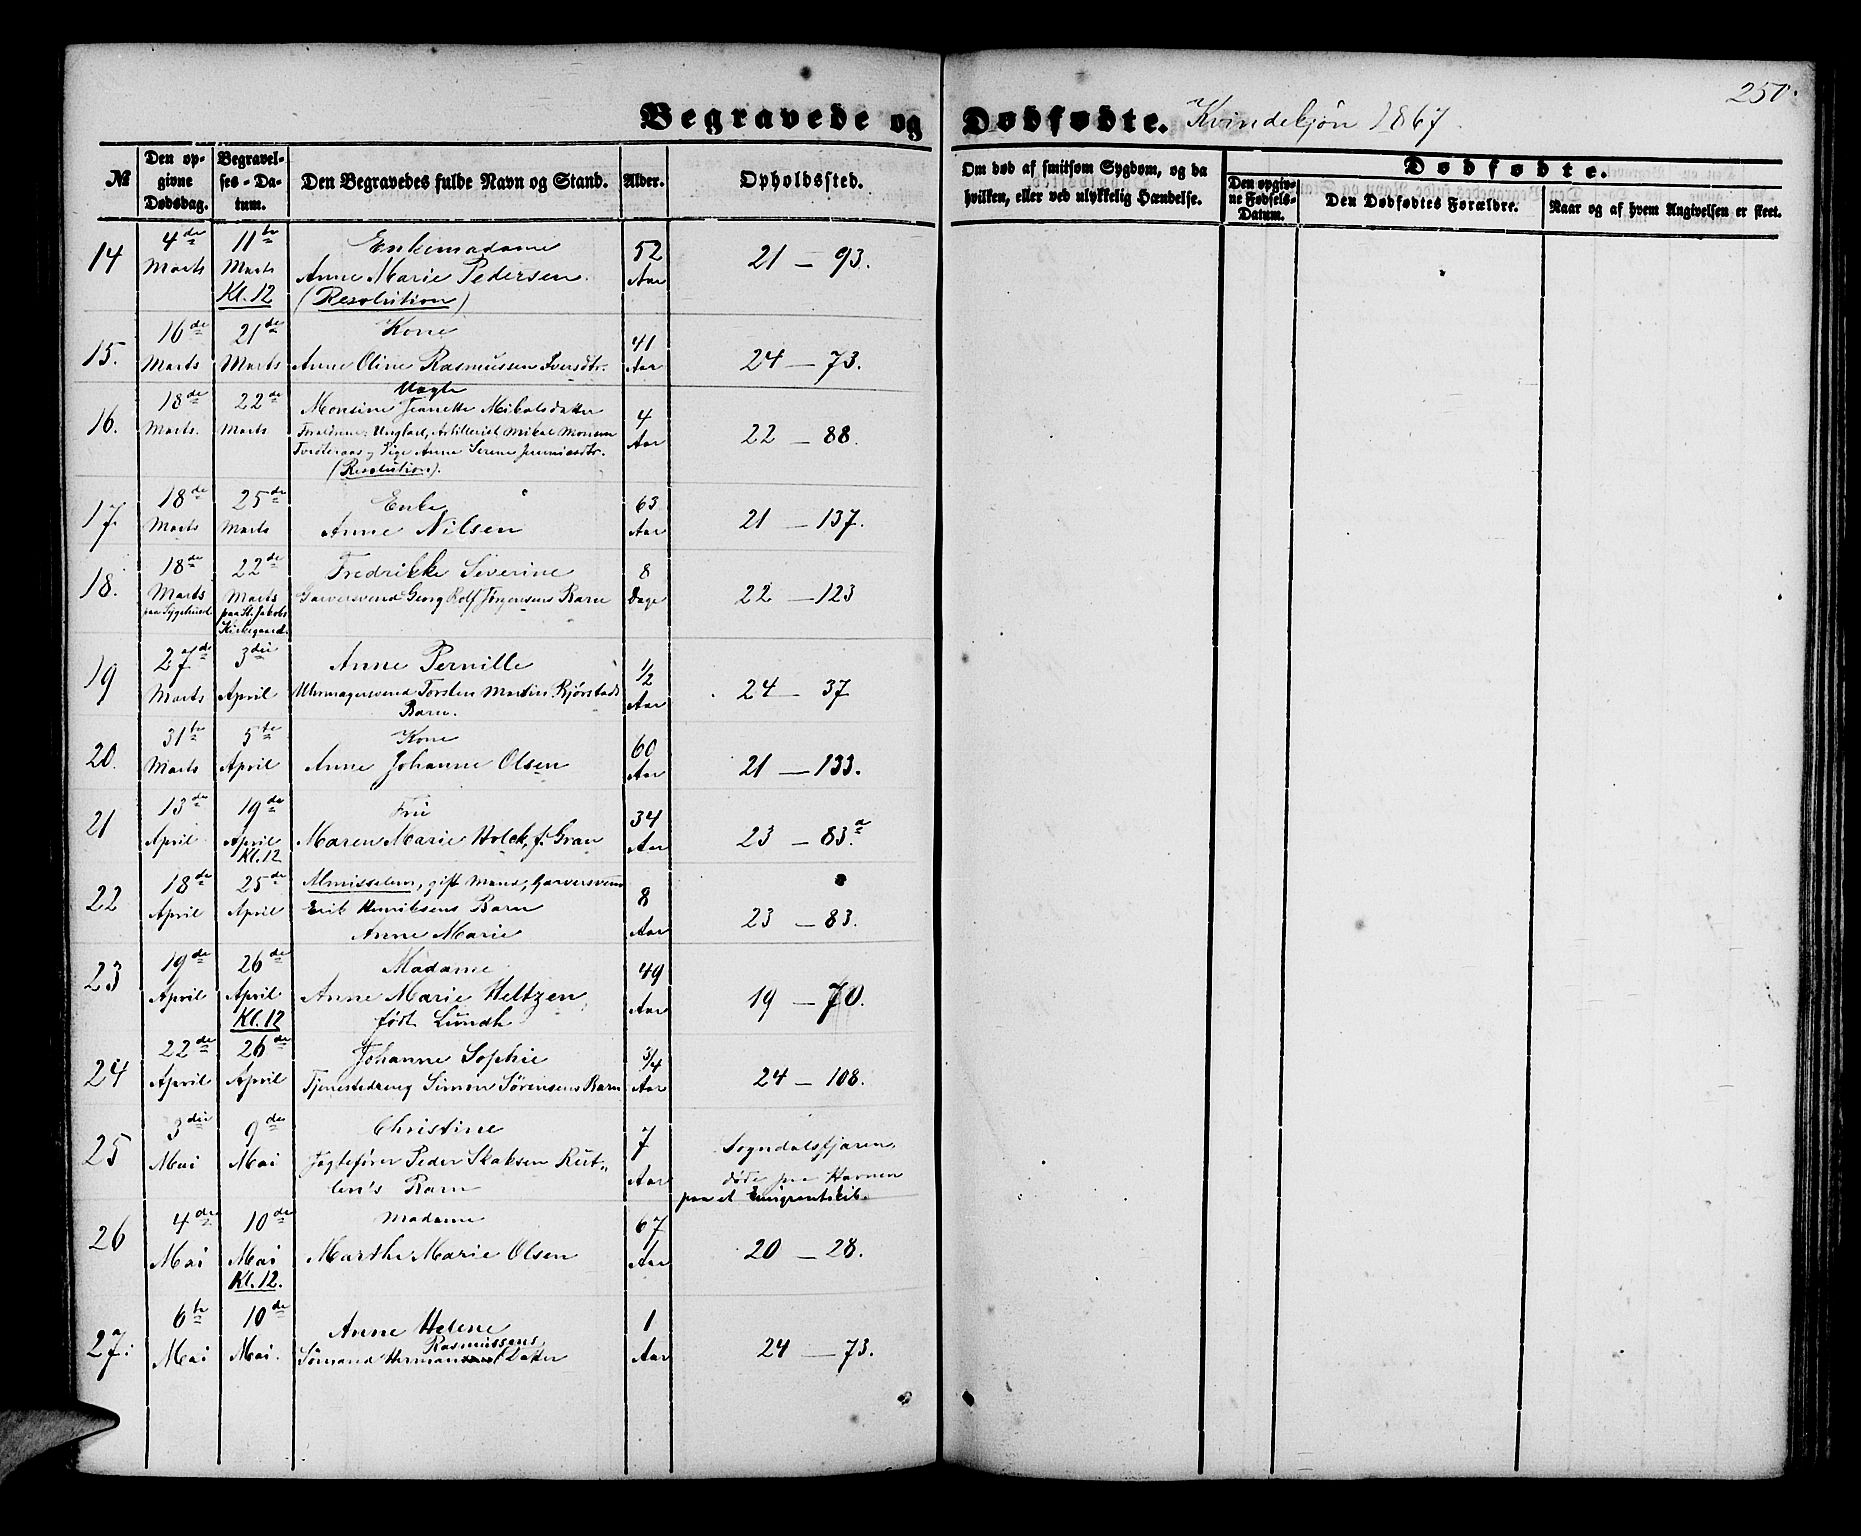 250.
Begravede og Dødfødte. Kvindekjøn 1867.
№
Den opgivne Dødsdag.
Begravelses-Datum.
Den Begravedes fulde Navn og Stand.
Alder.
Opholdssted.
Om død af smitsom Sygdom, og da hvilken, eller ved ulykkelig Hændelse.
Dødfødte.
Den opgivne Fødsels-Datum.
Den Dødfødtes Forældre.
Naar og af hvem Angivelsen er skeet.
14 4de Marts 11te Marts Kl. 12 Enkemadame
Anne Marie Pedersen.
(Resolution)
52 Aar 21 – 93.
15. 16de Marts 21de Marts Kone
Anne Oline Rasmussen Iversdtr.
41 Aar 24 – 73.
16. 18de Marts. 22de Marts Uægte
Monsine Jeanette Mikalsdatter
Forældrene: Ungkarl, Artillerist Mikal Monsen
og Pige Anne Serene Jeremiasdtr.
(Resolution).
4 Aar 22 – 88.
17. 18de Marts 25de Marts Enke
Anne Nilsen
63 Aar 21 – 137.
18. 18de Marts paa Sygehuset 22de Marts paa St. Jakobs Kirkegaard. Fredrikke Severine
Garversvend Georg Rolf Jørgensens Barn
8 Dage 22 – 123
19 27de Marts 3die April Anne Pernille
Uhrmagersvend Torsten Martin Bjørstads
Barn.
1/2 Aar 24 – 37
20. 31te Marts 5te April Kone
Anne Johanne Olsen
60 Aar 21 – 133.
21 13de April 19de April Kl. 12 Fru
Maren Marie Holck, f. Gran
34 Aar 23 – 83a.
22 18de April 25de April Almisselem, gift Mand, Garversvend
Erik Henriksens Barn
Anne Marie
8 Aar 23 – 83.
23 19de April 26de April Kl. 12 Madame
Anne Marie Heltzen,
født Lundh
49 Aar 19 – 70.
24 22de April 26de April Johanne Sophie
Tjenestedreng Simon Sørensens Barn
3/4 Aar 24 – 108.
25 3die Mai 9de Mai Christine
Jægtefører Peder Skaksen Rut-
len's Barn
7 Aar Sogndalsfjæren,
døde paa Havnen
paa et Emigrantskib.
26 4de Mai 10de Mai Kl. 12. Madame
Marthe Marie Olsen
67 Aar 20 – 28.
27. 6te Mai 10de Mai. Anne Helene
Sømand Herman Rasmussens Datter
1 Aar 24 – 73.